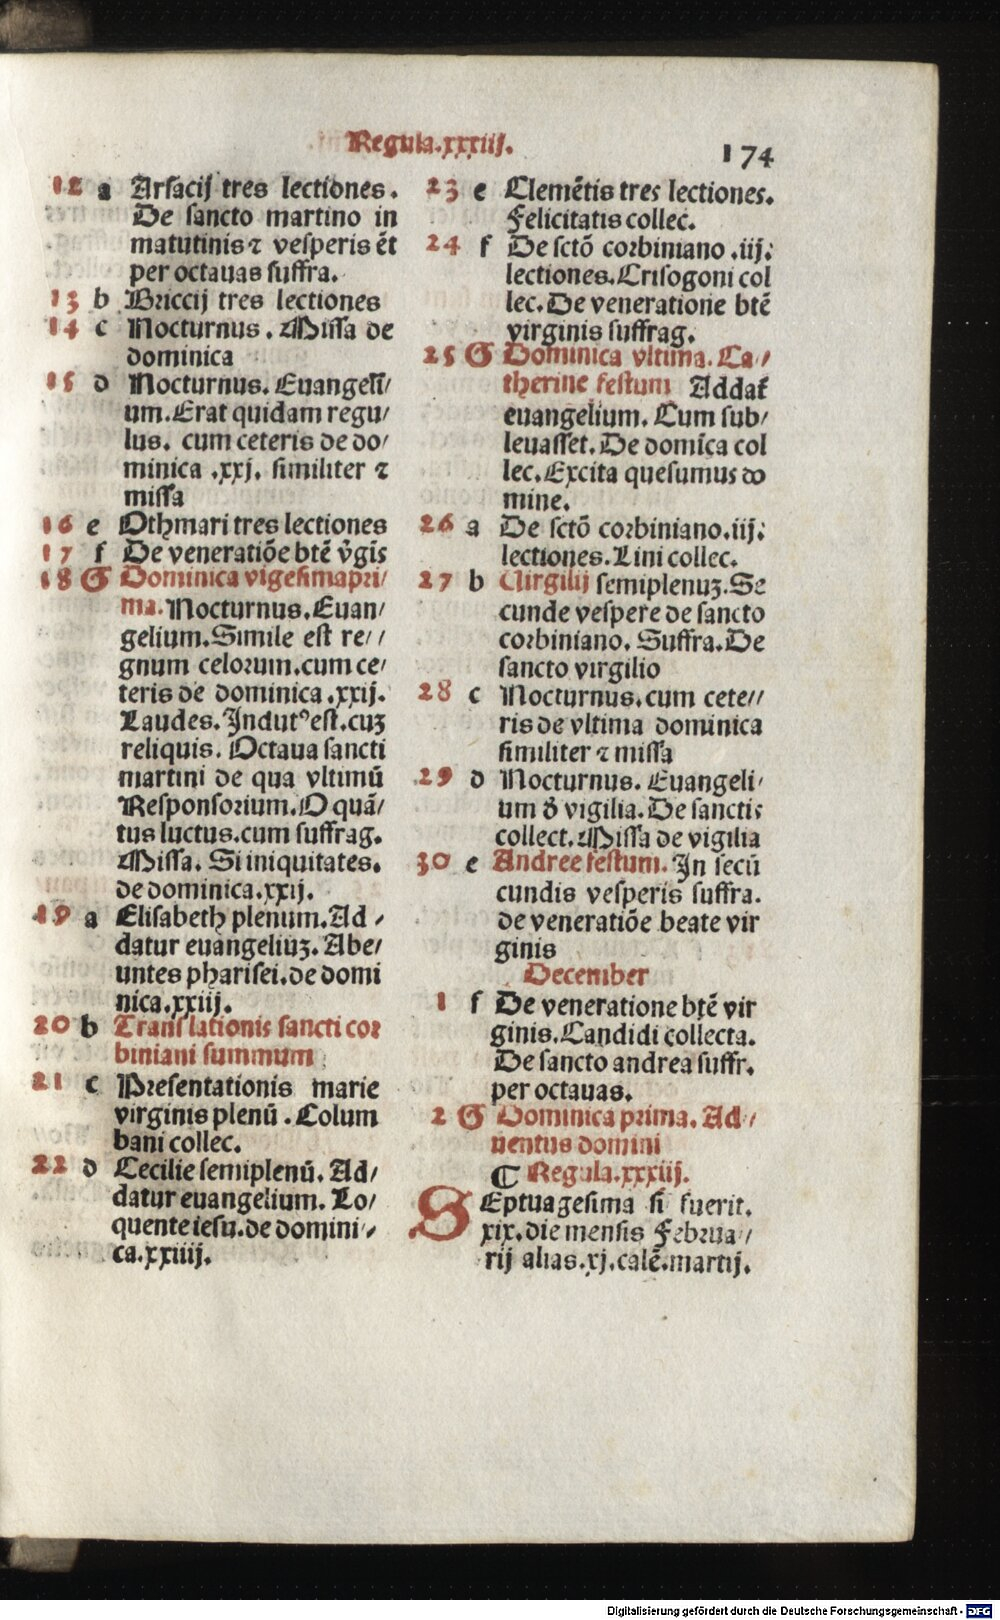 Regula.xxxiij.
174
12 a Arsacij tres lectiones.
De sancto martino in
matutinis ⁊ vesperis ēt
per octauas suffra.
13 b Briccij tres lectiones
14 c Nocturnus. Missa de
dominica
15 d Nocturnus. Euangeli/
um. Erat quidam regu/
lus. cum ceteris de do/
minica .xxj. similiter ⁊
missa
16 e Othmari tres lectiones
17 f De veneratiõe btē v̄gis
18 G Dominica vigesimapri/
ma. Nocturnus. Euan/
gelium. Simile est re//
gnum celorum. cum ce/
teris de dominica .xxij.
Laudes. Indutꝰ est. cuꝫ
reliquis. Octaua sancti
martini de qua vltimū
Responsorium. O quã/
tus luctus. cum suffrag.
Missa. Si iniquitates.
de dominica. xxij.
19 a Elisabeth plenum. Ad/
datur euangeliuꝫ. Abe/
untes pharisei. de domi
nica. xxiij.
20 b Translationis sancti cor
biniani summum
21 c Presentationis marie
virginis plenū. Colum
bani collec.
22 d Cecilie semiplenū. Ad/
datur euangelium. Lo/
quente iesu. de domini//
ca. xxiiij.
23 e Clemētis tres lectiones.
Felicitatis collec.
24 f De sctõ corbiniano .iij:
lectiones. Crisogoni col
lec. De veneratione btē
virginis suffrag.
25 G Dominica vltima. Ca//
therine festum Addat̄
euangelium. Cum sub/
leuasset. De domīca col
lec. Excita quesumus do
mine.
26 a De sctõ corbiniano. iij:
lectiones. Lini collec.
27 b Virgilij semiplenuꝫ. Se
cunde vespere de sancto
corbiniano. Suffra. De
sancto virgilio
28 c Nocturnus. cum cete//
ris de vltima dominica
similiter ⁊ missa
29 d Nocturnus. Euangeli/
um d̄ vigilia. De sanctis
collect. Missa de vigilia
30 e Andree festum. In secū
cundis vesperis suffra.
de veneratiõe beate vir
ginis
December
1 f De veneratione btē vir
ginis. Candidi collecta.
De sancto andrea suffr.
per octauas.
2 G Dominica prima. Ad//
uentus domini
¶ Regula. xxxiij.
SEptuagesima si fuerit.
xix. die mensis Februa//
rij alias. xj. calē. martij.
Digitalisierung gefördert durch die Deutsche Forschungsgemeinschaft - DFG